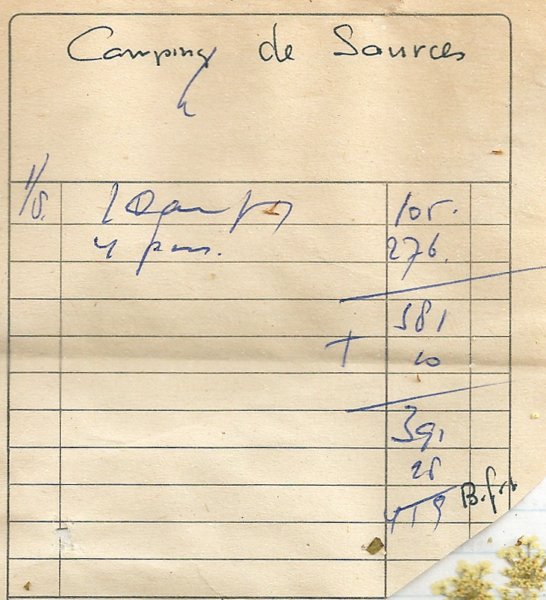 Camping de Sources
1/8.
105.
4 pers. 276.
381
+ 10
391
28
419 B.fr.